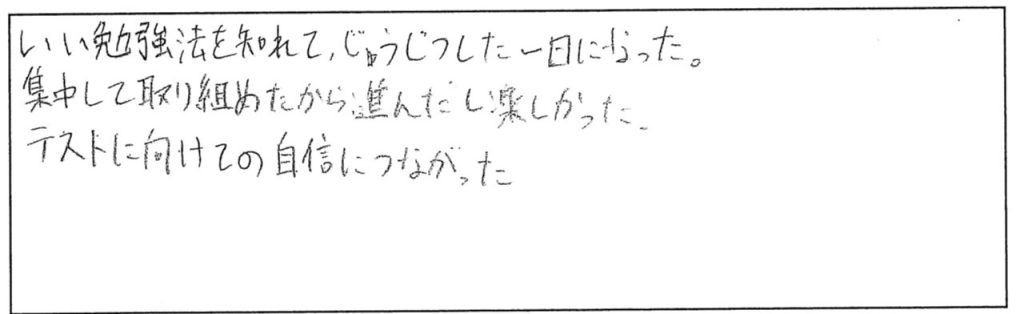 いい勉強法を知れて,じゅうじつした一日になった。
集中して取り組めたから進んだし楽しかった.
テストに向けての自信につながった